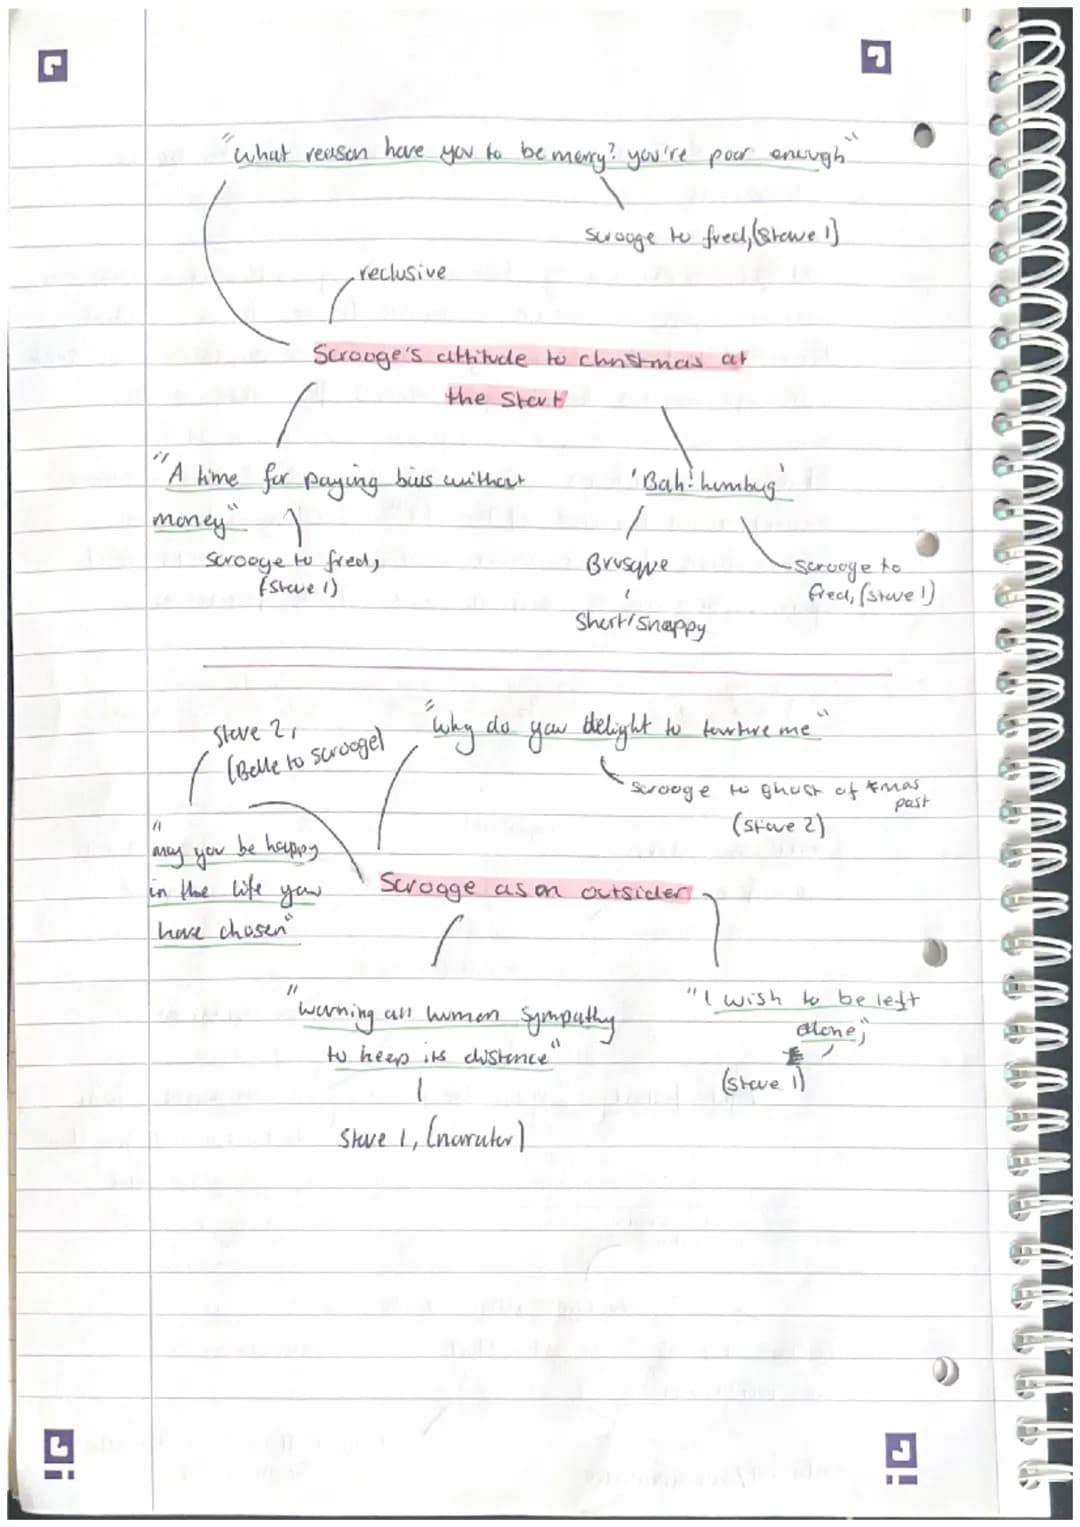 "What reason have you to be merry? you're poor enough"
Scrooge to fred, (Stave 1)
reclusive
Scrooge's attitude to christmas at
the Start
"A time for paying bills without
money"
Scrooge to fred,
(Stave 1)
'Bah! humbug'
Brusque
Short/Snappy
Scrooge to
fred, (Stave 1)
Stave 2,
(Belle to scrooge)
"Why do you delight to torture me"
Scrooge to ghost of xmas
past
(Stave 2)
"may you be happy
in the life you
have chosen"
Scrogge as an outsider
"warning all human sympathy
to keep its distance"
Stave 1, (narrator)
"I wish to be left
alone,"
(Stave 1)